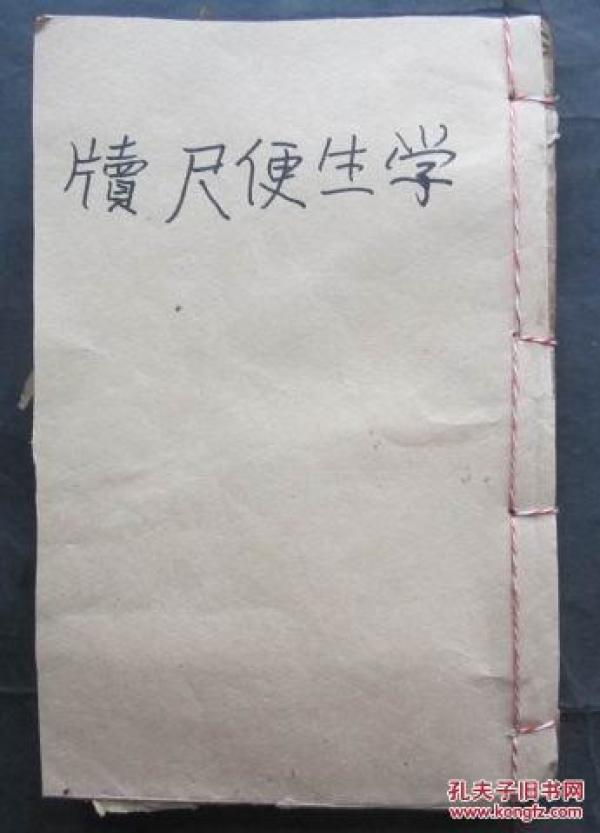 牘尺便生学
孔夫子旧书网
www.kongfz.com